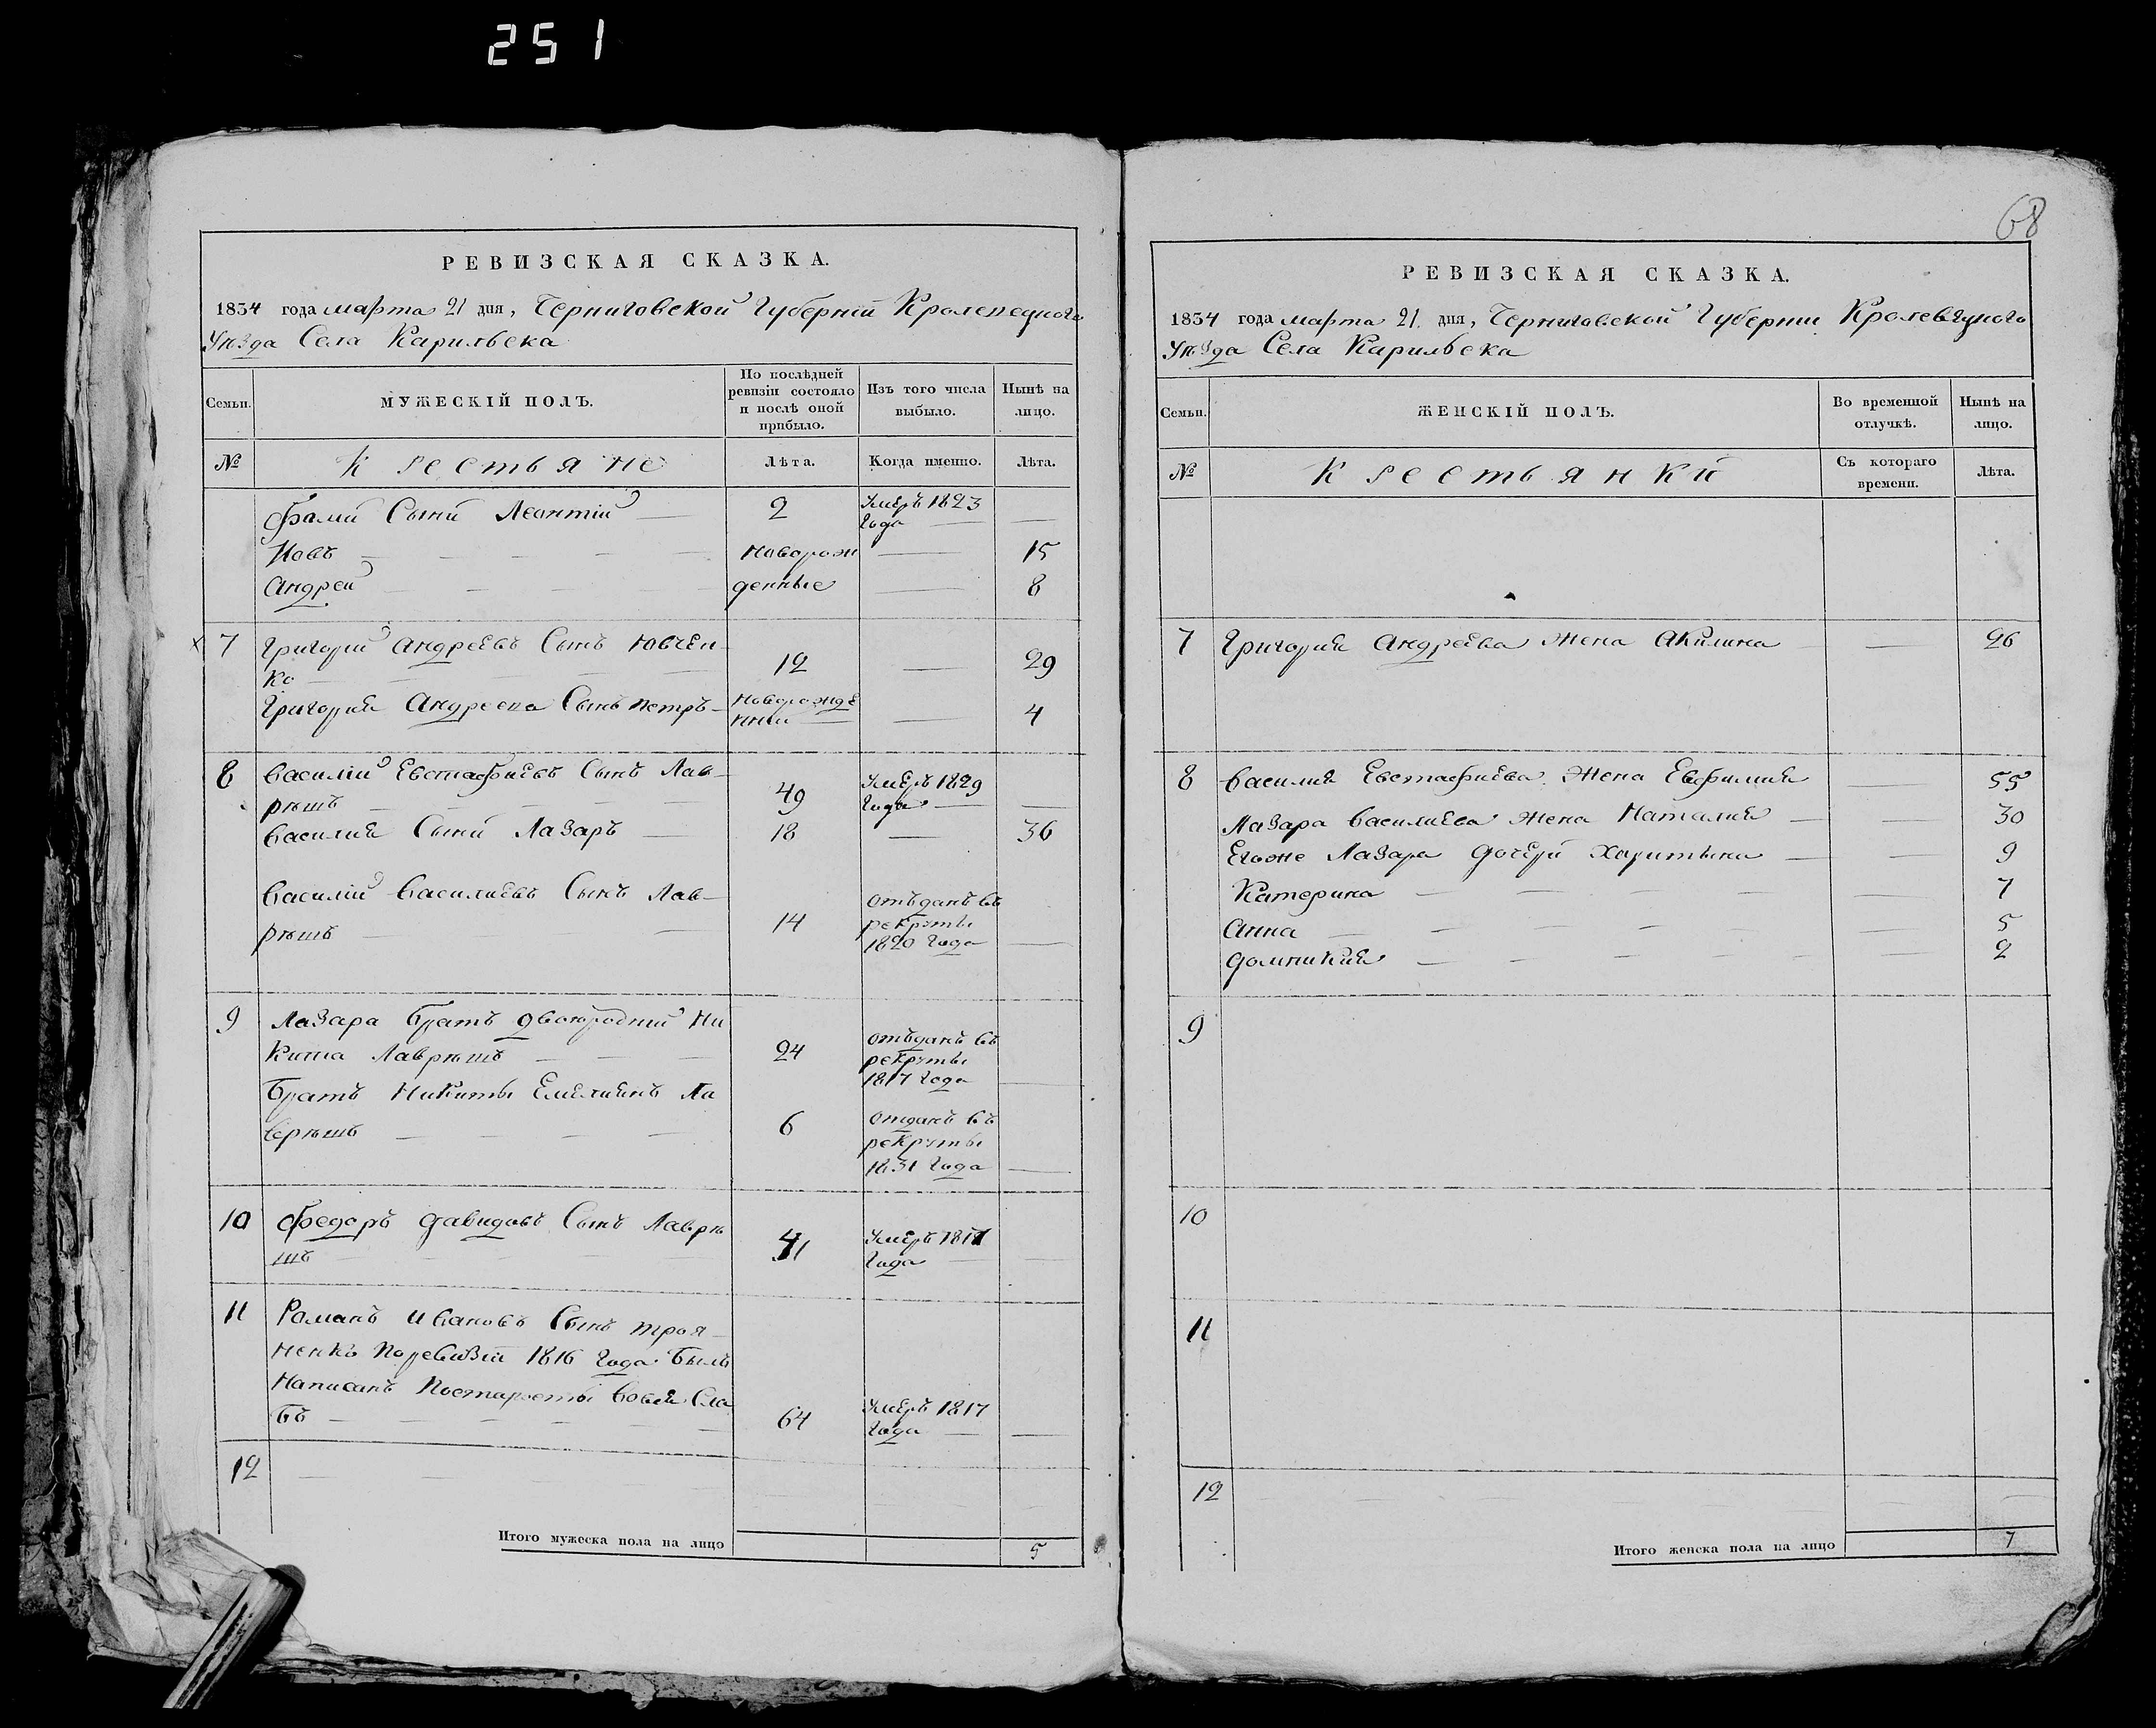 251
РЕВИЗСКАЯ СКАЗКА.
1834 года марта 21 дня, Черниговской Губернии Кролевецкого
Уѣзда Села Карильска
Семьи.
МУЖЕСКІЙ ПОЛЪ.
По послѣдней ревизіи состояло и послѣ оной прибыло.
Изъ того числа выбыло.
Нынѣ на лицо.
№
Крестьяне
Лѣта.
Когда именно.
Лѣта.
Фами Сыни Леонтій — 2 Умеръ 1823 Года —
Иовъ — Новорож — 15
Андрей — денные — 8
7 Григорій Андреевъ Сынъ Ювчен-
ко — 12 — 29
Григория Андреева Сынъ Петръ — Новорожде нни — 4
8 Василій Евстафиевъ Сынъ Лав-
рѣшъ — 49 Умеръ 1829 Года —
Василия Сыни Лазаръ — 18 — 36
Василій Василиевъ Сынъ Лав-
рѣшъ — 14 отъданъ въ рекруты 1820 Года —
9 Лазара Братъ двоюродний Ни
кита Лаврѣшъ — 24 отъданъ въ рекруты 1817 Года —
Братъ Никиты Емелиянъ Ла
врѣшъ — 6 отданъ въ рекруты 1831 Года —
10 Федоръ Давидовъ Сынъ Лаврѣ
шъ — Умеръ 1817 Года —
11 Романъ Ивановъ Сынъ Троя-
ненко Поревизіи 1816 Года Былъ
Написанъ Постарости Восей Сла
бѣ — 64 Умеръ 1817 Года —
12
Итого мужеска пола на лицо 5
68
РЕВИЗСКАЯ СКАЗКА.
1834 года марта 21 дня, Черниговской Губернии Кролевецкого
Уѣзда Села Карильска
Семьи.
ЖЕНСКІЙ ПОЛЪ.
Во временной отлучкѣ.
Нынѣ на лицо.
№
Крестьянки
Съ котораго времени.
Лѣта.
7 Григория Андреева Жена Акилина — 26
8 Василия Евстафиева Жена Евфимия — 55
Лазара Василиева Жена Наталия — 30
Егоже Лазара дочери Харитына — 9
Катерина — 7
Анна — 5
Домникия — 2
9
10
11
12
Итого женска пола на лицо 7